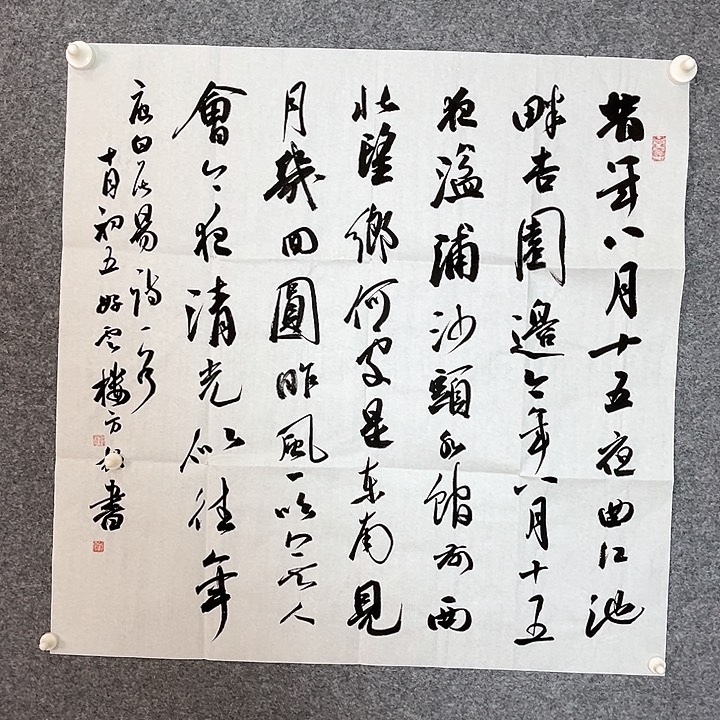 昔年八月十五夜曲江池
畔杏園邊今年八月十五
夜湓浦沙頭水館前西
北望鄉何處是東南見
月幾回圓昨風一吹無人
會今夜清光似往年
唐白居易詩一首
十月初五好雲樓方書